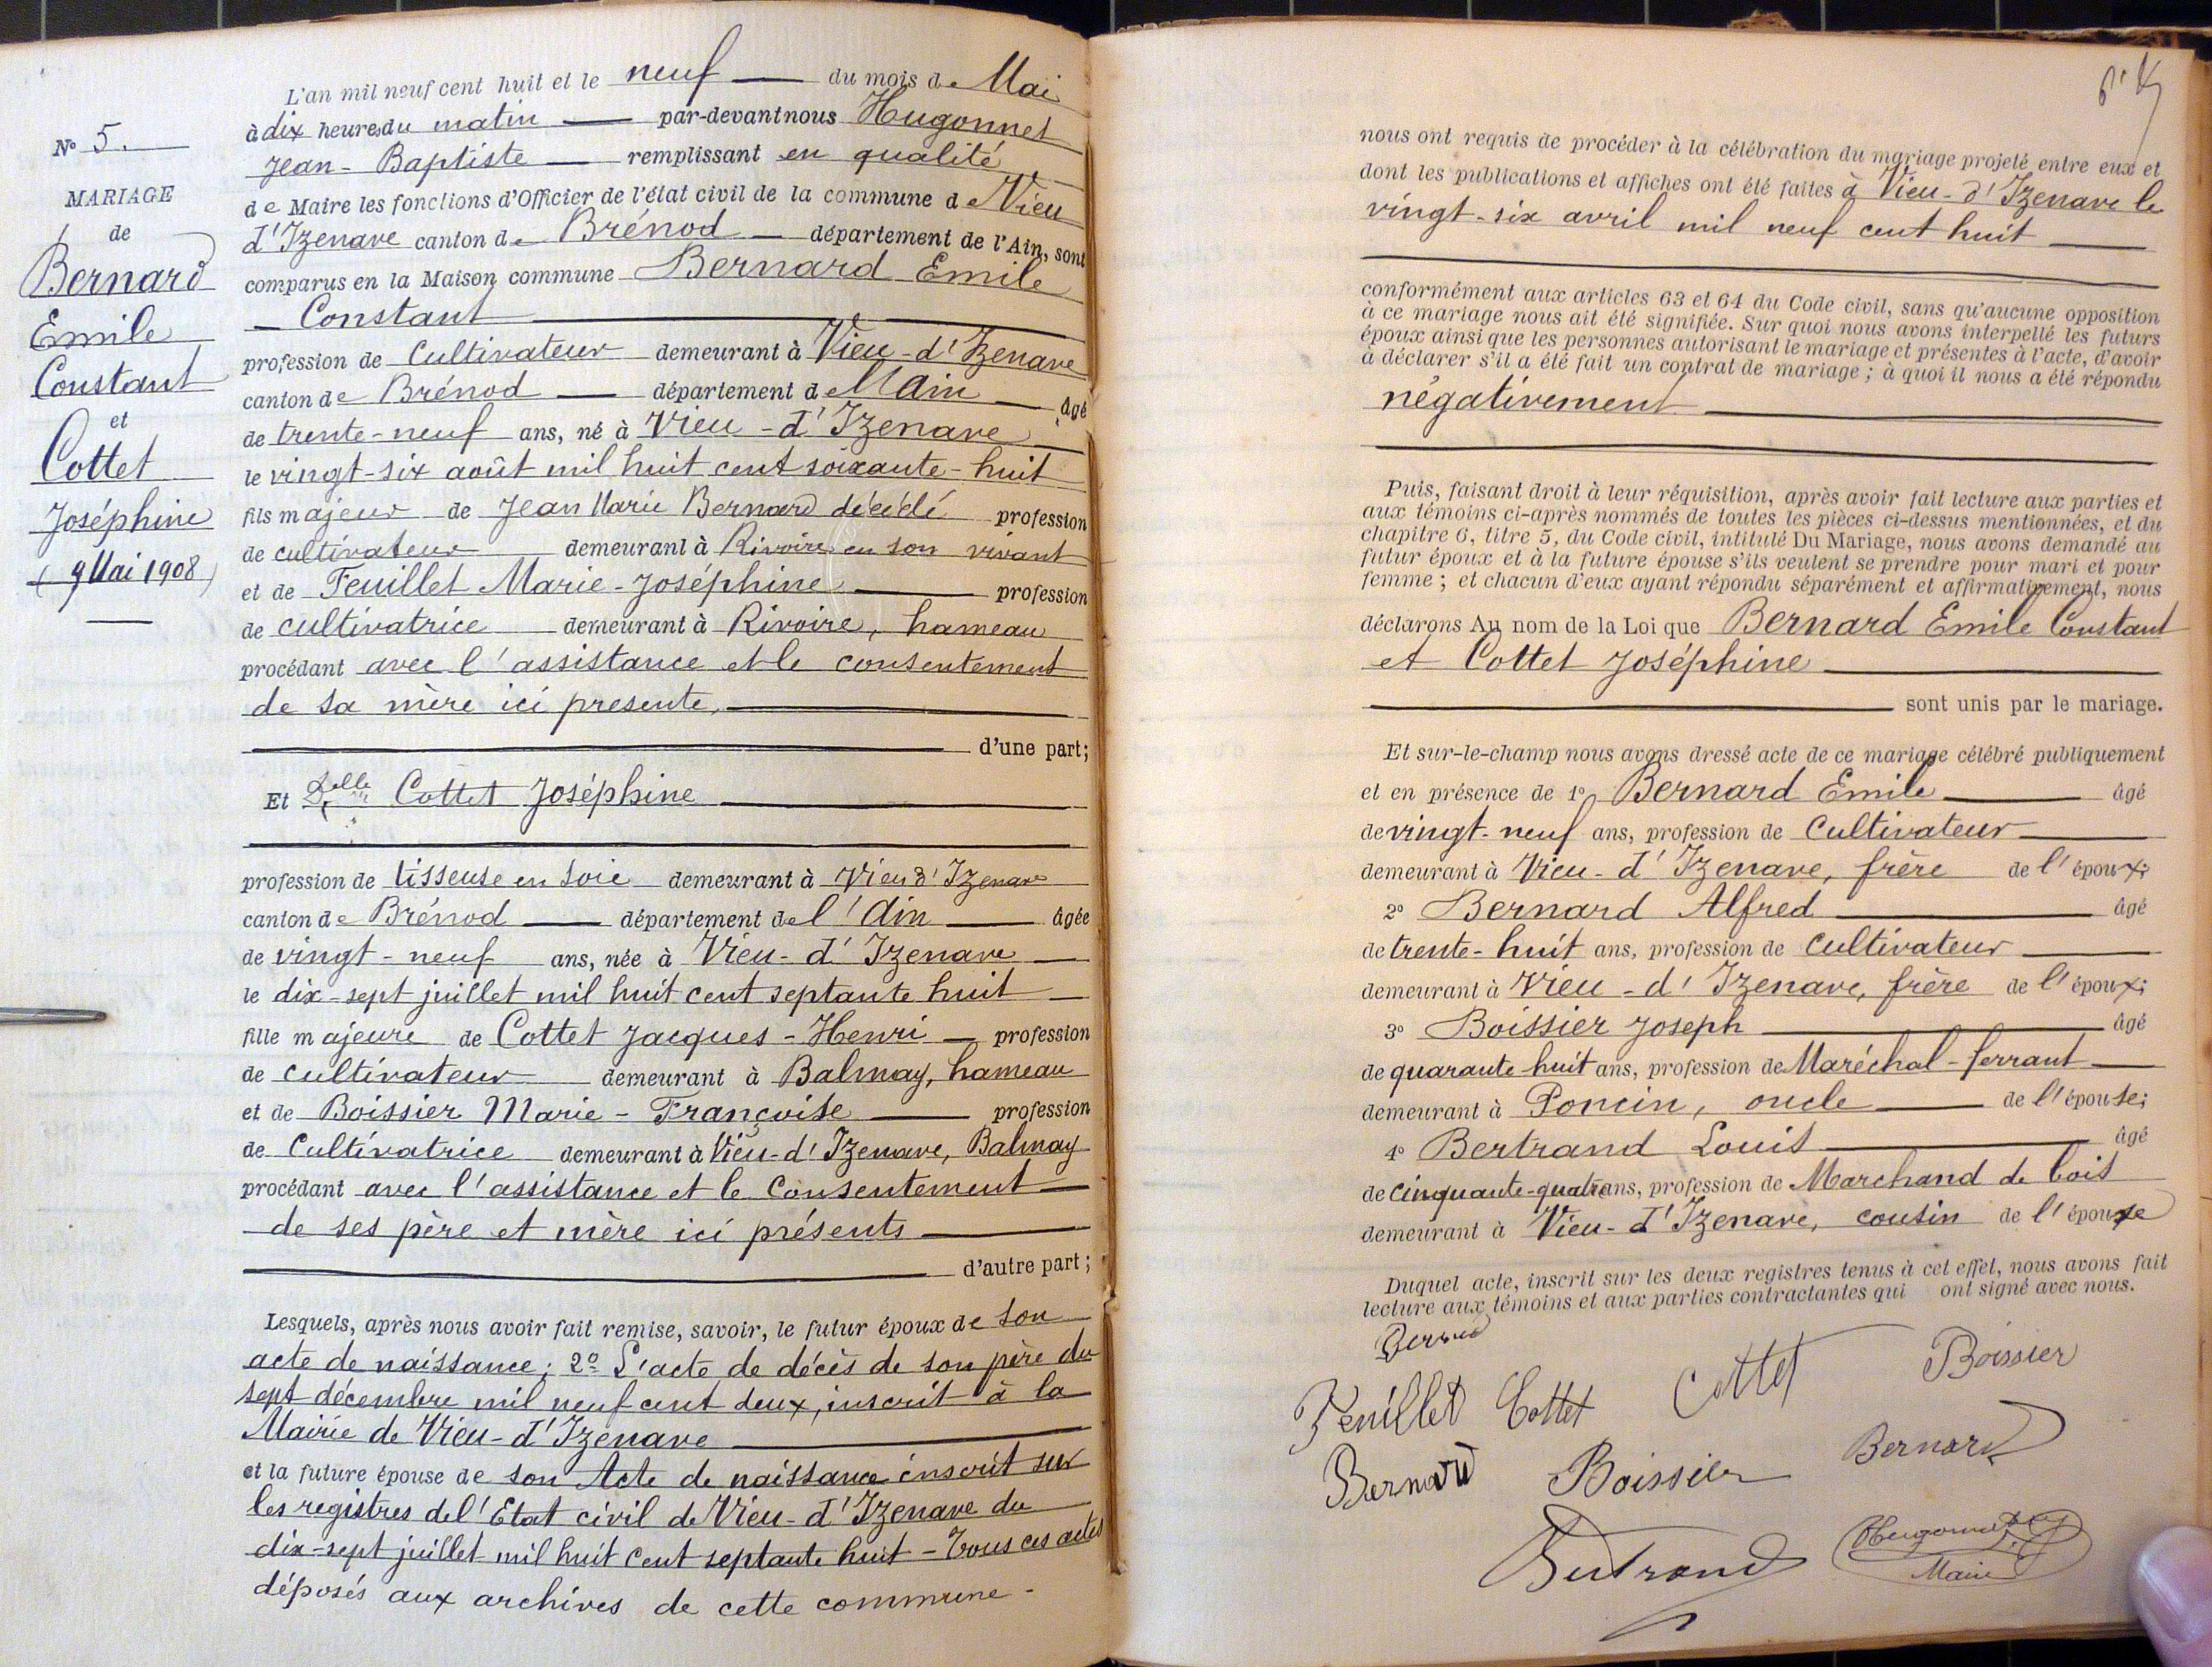 N° 5.
MARIAGE
de
Bernard
Emile
Constant
et
Cottet
Joséphine
9 Mai 1908
L'an mil neuf cent huit et le neuf du mois de Mai
à dix heures du matin par-devant nous Hugonnet
Jean-Baptiste remplissant en qualité
de Maire les fonctions d'Officier de l'état civil de la commune de Vieu
d'Izenave canton de Brénod département de l'Ain, sont
comparus en la Maison commune Bernard Emile
Constant
profession de Cultivateur demeurant à Vieu-d'Izenave
canton de Brénod département de l'Ain âgé
de trente-neuf ans, né à Vieu-d'Izenave
le vingt-six août mil huit cent soixante-huit
fils majeur de Jean Marie Bernard décédé profession
de cultivateur demeurant à Rivoire en son vivant
et de Feuillet Marie-Joséphine profession
de cultivatrice demeurant à Rivoire, hameau
procédant avec l'assistance et le consentement
de sa mère ici presente,
d'une part;
Et Delle Cottet Joséphine
profession de tisseuse en soie demeurant à Vieu d'Izenave
canton de Brénod département de l'Ain âgée
de vingt-neuf ans, née à Vieu-d'Izenave
le dix-sept juillet mil huit cent septante huit
fille majeure de Cottet Jacques-Henri profession
de cultivateur demeurant à Balmay, hameau
et de Boissier Marie-Françoise profession
de Cultivatrice demeurant à Vieu-d'Izenave, Balmay
procédant avec l'assistance et le Consentement
de ses père et mère ici présents
d'autre part;
Lesquels, après nous avoir fait remise, savoir, le futur époux de son
acte de naissance; 2° L'acte de décès de son père du
sept décembre mil neuf cent deux, inscrit à la
Mairie de Vieu-d'Izenave
et la future épouse de son Acte de naissance inscrit sur
les registres de l'Etat civil de Vieu-d'Izenave du
dix-sept juillet mil huit cent septante huit - Tous ces actes
déposés aux archives de cette commune -
nous ont requis de procéder à la célébration du mariage projeté entre eux et
dont les publications et affiches ont été faites à Vieu-d'Izenave le
vingt-six avril mil neuf cent huit
conformément aux articles 63 et 64 du Code civil, sans qu'aucune opposition
à ce mariage nous ait été signifiée. Sur quoi nous avons interpellé les futurs
époux ainsi que les personnes autorisant le mariage et présentes à l'acte, d'avoir
à déclarer s'il a été fait un contrat de mariage; à quoi il nous a été répondu
négativement
Puis, faisant droit à leur réquisition, après avoir fait lecture aux parties et
aux témoins ci-après nommés de toutes les pièces ci-dessus mentionnées, et du
chapitre 6, titre 5, du Code civil, intitulé Du Mariage, nous avons demandé au
futur époux et à la future épouse s'ils veulent se prendre pour mari et pour
femme; et chacun d'eux ayant répondu séparément et affirmativement, nous
déclarons Au nom de la Loi que Bernard Emile Constant
et Cottet Joséphine
sont unis par le mariage.
Et sur-le-champ nous avons dressé acte de ce mariage célébré publiquement
et en présence de 1° Bernard Emile âgé
de vingt-neuf ans, profession de Cultivateur
demeurant à Vieu-d'Izenave, frère de l'époux;
2° Bernard Alfred âgé
de trente-huit ans, profession de Cultivateur
demeurant à Vieu-d'Izenave, frère de l'époux;
3° Boissier Joseph âgé
de quarante-huit ans, profession de Maréchal-ferrant
demeurant à Poncin, oncle de l'épouse;
4° Bertrand Louis âgé
de cinquante-quatre ans, profession de Marchand de bois
demeurant à Vieu-d'Izenave, cousin de l'épouse
Duquel acte, inscrit sur les deux registres tenus à cet effet, nous avons fait
lecture aux témoins et aux parties contractantes qui ont signé avec nous.
Feuillet Cottet Cottet Boissier
Bernard Boissier Bernard
Bertrand Hugonnet
Maire